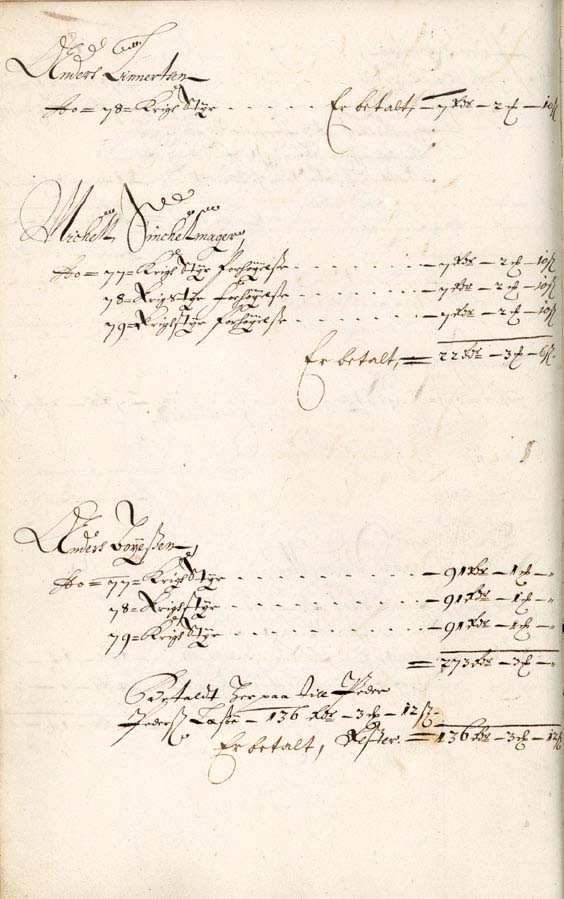 Anders Linnertsen
Ao = 78 = Krigs Styr . . . . . Er betalt, — 7 Rdr — 2 ℳ — 10 ß
Michell Sinchelmager,
Ao = 77 = Krigs Styr forhøyelse . . . . . . — 7 Rdr — 2 ℳ — 10 ß
78 = Krigstyr forhøyelse . . . . . . — 7 Rdr — 2 ℳ — 10 ß
79 = Krigstyr forhøyelse . . . . . . — 7 Rdr — 2 ℳ — 10 ß
Er betalt, = 22 Rdr — 3 ℳ — 6 ß.
Anders Boyessen,
Ao = 77 = Krigs Styr . . . . . . . . . — 91 Rdr — 1 ℳ — „
78 = Krigsstyr . . . . . . . . . — 91 Rdr — 1 ℳ — „
79 = Krigs Styr . . . . . . . . . — 91 Rdr — 1 ℳ — „
= 273 Rdr — 3 ℳ — „
Betaldt her paa till Peder
Pederß — 136 Rdr — 3 ℳ — 12 ß
Er betalt, Rester. = 136 Rdr — 3 ℳ — 12 ß